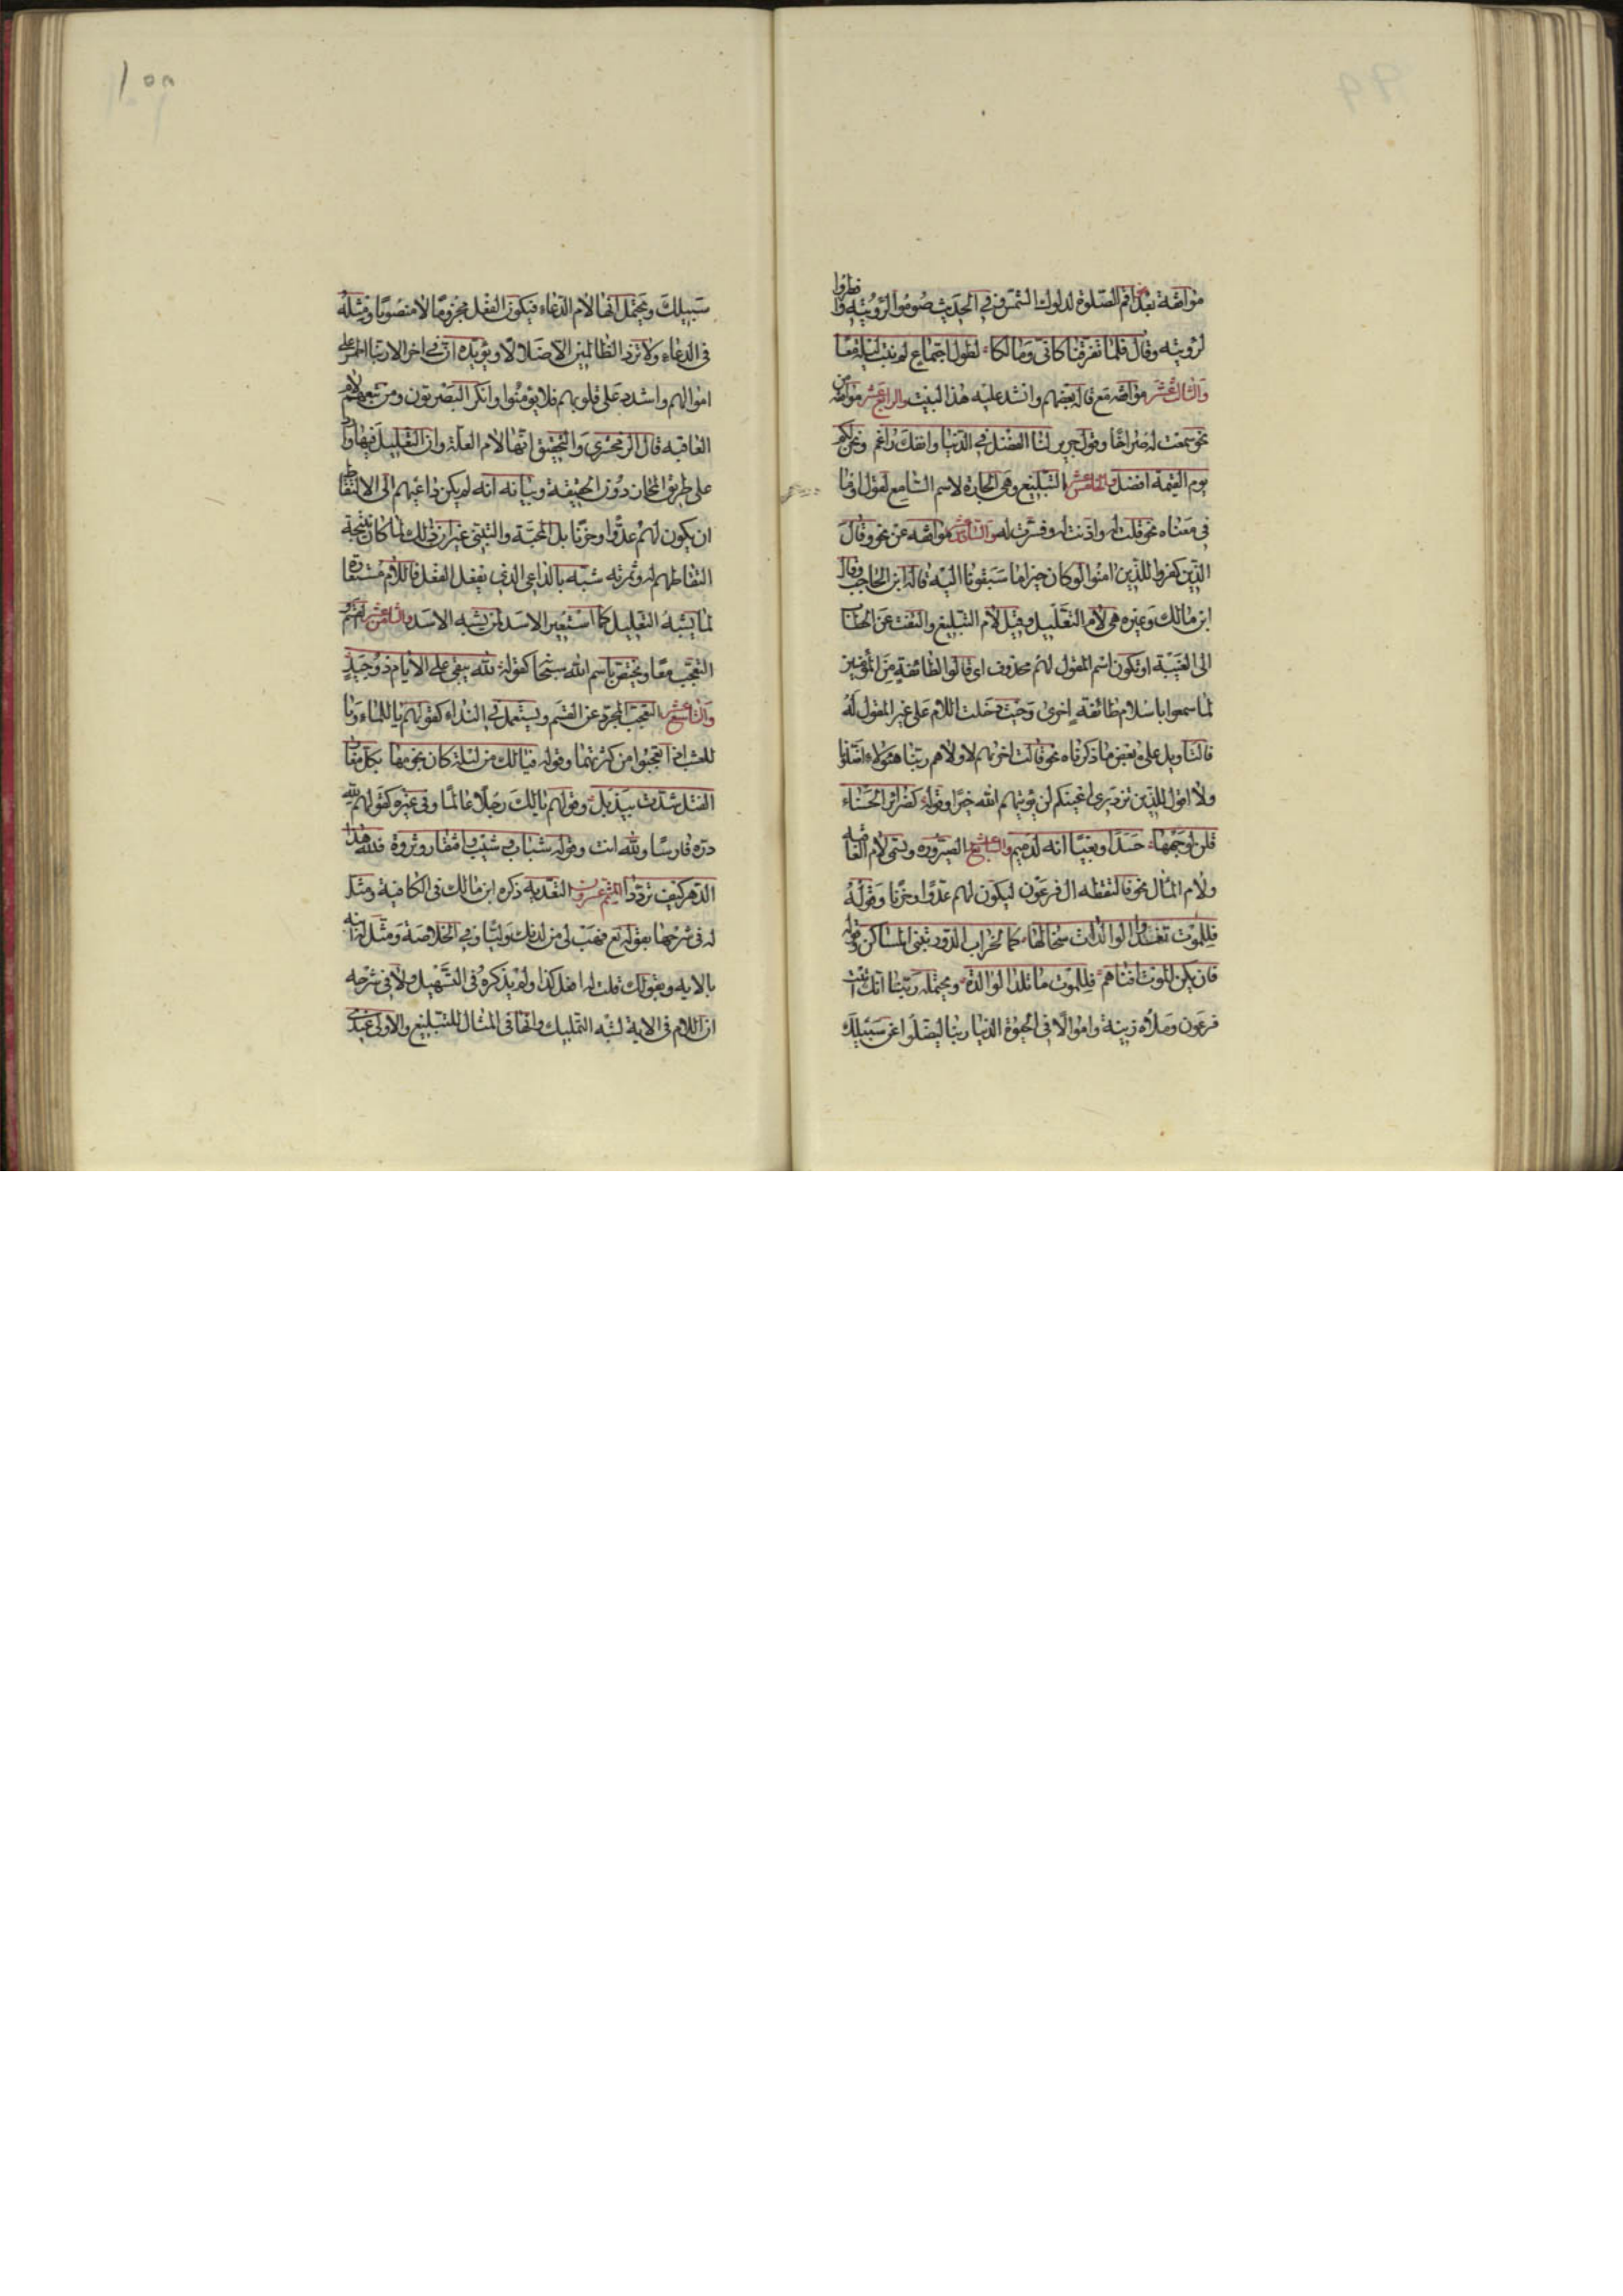 موافقة بعد اقم الصلوة لدلوك الشمس وفي الحديث صوموا لرؤيته وافطروا
لرؤيته وقال فلما تفرقنا كاني ومالكا لطول اجتماع لم نبت ليلة معا
والثالث عشر موافقة مع قاله بعضهم وانشد عليه هذا البيت والرابع عشر موافقة من
نحو سمعت له صراخا وقول جرير لنا الفضل في الدنيا وانفك راغم ونحن لكم
يوم القيمة افضل والخامس عشر التبليغ وهي الجارة لاسم السامع لقول او ما
في معناه نحو قلت له واذنت له وفسرت له والسادس عشر موافقة عن نحو وقال
الذين كفروا للذين امنوا لو كان خيرا ما سبقونا اليه قاله ابن الحاجب وقال
ابن مالك وغيره هي لام التعليل وقيل لام التبليغ والتفت عن الخطاب
الى الغيبة او يكون اسم المقول لهم محذوف اى قالوا لطائفة من المؤمنين
لما سمعوا باسلام طائفة اخرى وحيث دخلت اللام على غير المقول له
فالتاويل على بعض ما ذكرناه نحو قالت اخريهم لاوليهم ربنا هؤلاء اضلونا
ولا اقول للذين تزدري اعينكم لن يؤتيهم الله خيرا وقوله كضرائر الحسناء
قلن لوجهها حسدا وبغيا انه لدميم والسابع عشر الصيرورة وتسمى لام العاقبة
ولام المآل نحو فالتقطه ال فرعون ليكون لهم عدوا وحزنا وقوله
فللموت تغذو الوالدات سخالها كما لخراب الدور تبنى المساكن وقوله
فان يكن الموت افناهم فللموت ما تلد الوالدة ويحتمله ربنا انك اتيت
فرعون وملاه زينة واموالا في الحيوة الدنيا ربنا ليضلوا عن سبيلك
۱۰۵
سبيلك ويحتمل انها لام الدعاء فيكون الفعل مجزوما لا منصوبا ومثله
في الدعاء ولا تزد الظالمين الا ضلالا ويؤيده ان في اخر الاية ربنا اطمس على
اموالهم واشدد على قلوبهم فلا يؤمنوا وانكر البصريون ومن تبعهم لام
العاقبة قال الزمخشري والتحقيق انها لام العلة وان التعليل فيها وارد
على طريق المجاز دون الحقيقة وبيانه انه لم يكن داعيهم الى الالتقاط
ان يكون لهم عدوا وحزنا بل المحبة والتبني غير ان ذلك لما كان نتيجة
التقاطهم له وثمرته شبه بالداعي الذي يفعل الفعل فاللام مستعارة
لما يشبه التعليل كما استعير الاسد لمن يشبه الاسد والثامن عشر القسم و
التعجب معا ويختص باسم الله سبحا كقوله لله يبقى على الايام ذو حيد
والتاسع عشر التعجب المجرد عن القسم ويستعمل في النداء كقولهم يا للماء ويا
للعشب اذا تعجبوا من كثرتهما وقوله فيا لك من ليل كان نجومها بكل مغار
الفتل شدت بيذبل وقولهم يا لك رجلا عالما وفي غيره كقولهم لله
دره فارسا ولله انت وقوله شباب وشيب وافتقار وثروة فلله هذا
الدهر كيف ترددا المتم عشرون التعدية ذكره ابن مالك في الكافية ومثل
له في شرحها بقوله تع فهب لي من لدنك وليا وفي الخلاصة ومثل له ابنه
بالاية وبقولك قلت له افعل كذا ولم يذكره في التسهيل ولا في شرحه
ان اللام في الاية لشبه التمليك وانها في المثال للتبليغ والاولى عندي